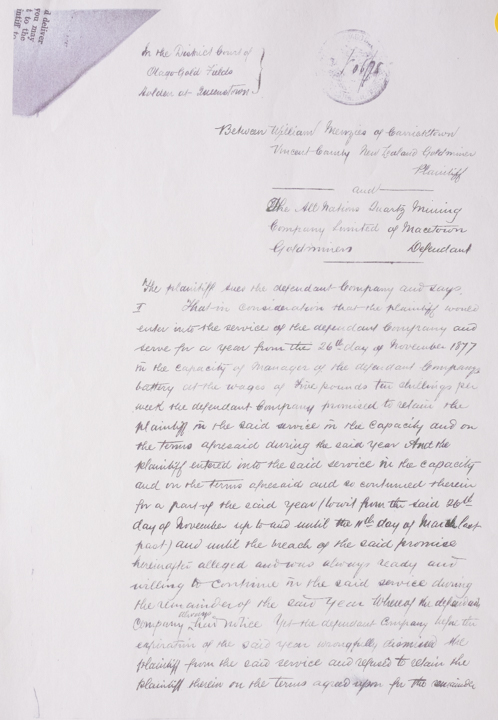 a deliver
you may
t to the
In the District Court of
Otago Gold Fields
holden at Queenstown
Between William Menzies of Carricktown
Vincent County New Zealand Goldminer
Plaintiff
and
The All Nations Quartz Mining
Company Limited of Macetown
Goldminers Defendant
The plaintiff sues the defendant Company and says
I That in consideration that the plaintiff would
enter into the service of the defendant Company and
serve for a year from the 26th day of November 1877
in the capacity of Manager of the defendant Companys
battery at the wages of Five pounds ten shillings per
week the defendant Company promised to retain the
plaintiff in the said service in the capacity and on
the terms aforesaid during the said year And the
plaintiff entered into the said service in the capacity
and on the terms aforesaid and so continued therein
for a part of the said year (to wit from the said 26th
day of November up to and until the 11th day of March last
past) and until the breach of the said promise
hereinafter alleged and was always ready and
willing to continue in the said service during
the remainder of the said year Whereof the defendant
Company always had notice Yet the defendant Company before the
expiration of the said year wrongfully dismissed the
plaintiff from the said service and refused to retain the
plaintiff therein on the terms agreed upon for the remainder